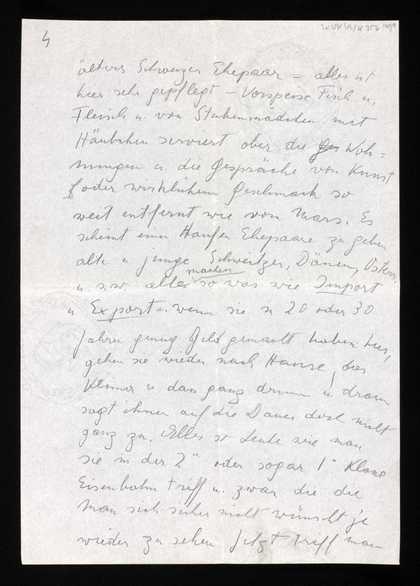 4
älteres Schweizer Ehepaar = alles ist
hier sehr gepflegt – Vorspeise Fisch u.
Fleisch u von Stubenmädchen mit
Häubchen serviert aber die Woh=
nungen u. die Gespräche von Kunst
oder wirklichem Geschmack so
weit entfernt wie vom Mars. Es
scheint einen Haufen Ehepaare zu geben
alte u junge Schweitzer, Dänen,
u. s.w. alles machen so was wie Import
u Export u. wenn sie in 20 oder 30
Jahren genug Geld gemacht haben hier,
gehen sie wieder nach Hause, das
Klima u dann ganz drum u dran
sagt ihnen auf die Dauer doch nicht
ganz zu. Alles so Leute wie man
sie in der 2" oder sogar 1" Klasse
Eisenbahn trifft u. zwar die die
man sich sicher nicht wünscht je
wieder zu sehen. Jetzt trifft man